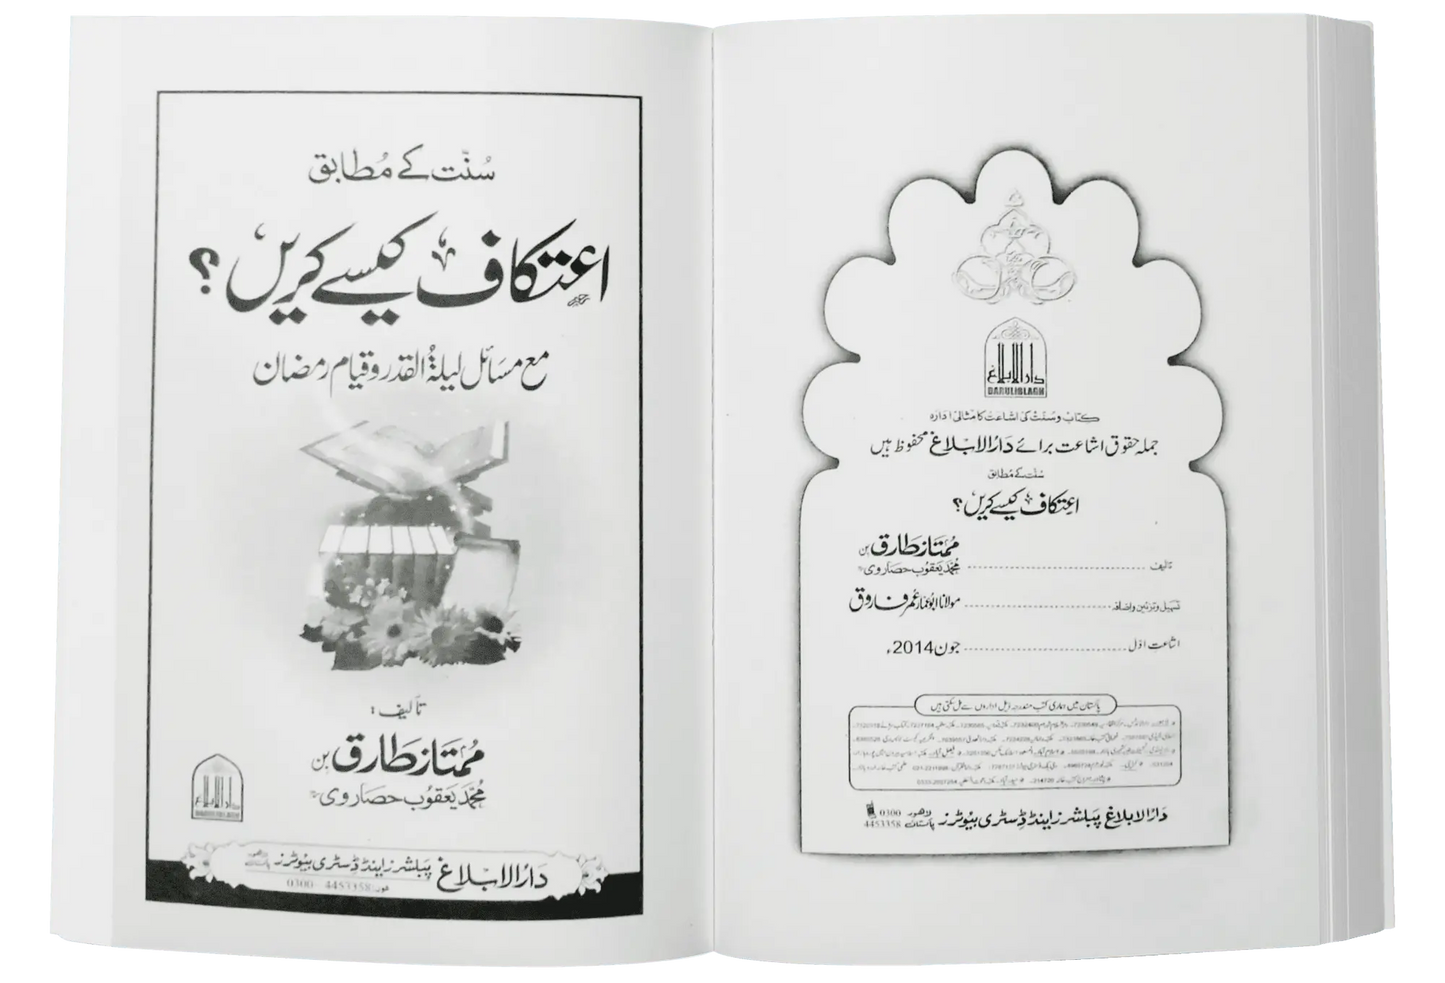 سُنّت کے مُطابق
اعتکاف کیسے کریں؟
مع مسَائل لیلۃُ القدر و قیامِ رمضان
تالیف:
مُمتاز طارق بن
محمّد یَعقُوب حصَاروی
دارالابلاغ
DARULIBLAGH
دَارُالابلاغ پَبلشرز اینڈ ڈِسٹری بیُوٹرز لاہور پاکستان
0300 - 4453358
دارالابلاغ
DARULIBLAGH
کتاب و سُنّت کی اشاعت کا مثالی ادارہ
جملہ حقوقِ اشاعت برائے دَارُالابلاغ محفوظ ہیں
سُنّت کے مُطابق
اعتکاف کیسے کریں؟
تالیف ........ مُمتاز طارق بن
محمّد یَعقُوب حصَاروی
تسہیل و تزئین و اضافہ ........ مولانا ابوعمار عمر فاروق
اشاعت اوّل ........ جون 2014ء
پاکستان میں ہماری کتب مندرجہ ذیل اداروں سے مل سکتی ہیں
دَارُالابلاغ پَبلشرز اینڈ ڈِسٹری بیُوٹرز لاہور پاکستان 0300 4453358